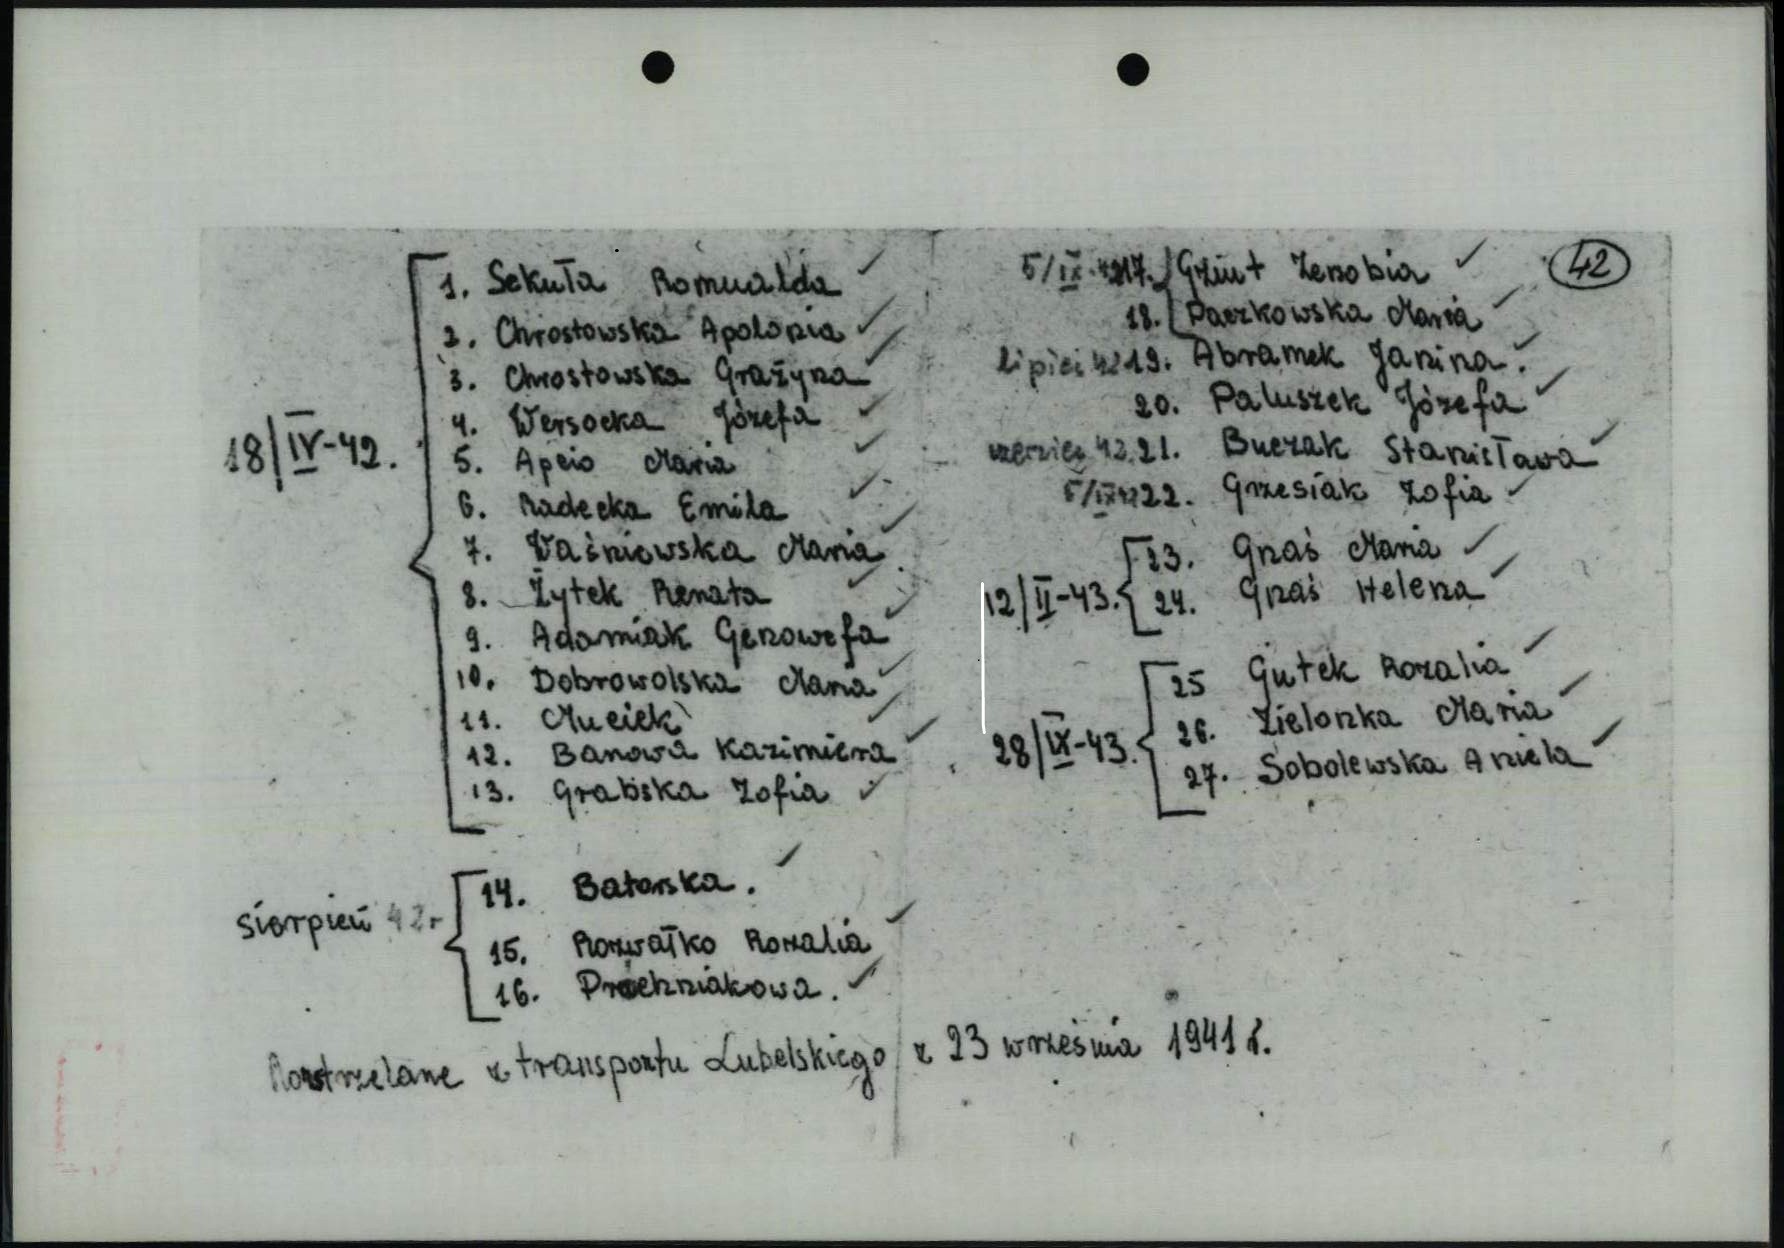 1. Sekuła Romualda
2. Chrostowska Apolonia
3. Chrostowska Grażyna
4. Wersocka Józefa
18/IV-42.
5. Apcio Maria
6. Radecka Emila
7. Waśniewska Maria
8. Żytek Renata
9. Adamiak Genowefa
10. Dobrowolska Maria
11. Muciek
12. Banowa Kazimiera
13. Grabska Zofia
14. Batorska.
sierpień 42 r
15. Rozwałko Rozalia
16. Prochniakowa.
42
5/IX-42 17. Gziut Zenobia
18. Paczkowska Maria
lipiec 42 19. Abramek Janina.
20. Paluszek Józefa
42. 21. Buczak Stanisława
5/IX 42 22. Grzesiak Zofia
23. Gnaś Maria
12/II-43. 24. Gnaś Helena
25 Gutek Rozalia
26. Zielonka Maria
28/IX-43.
27. Sobolewska Aniela
Rozstrzelane z transportu Lubelskiego z 23 września 1941 r.